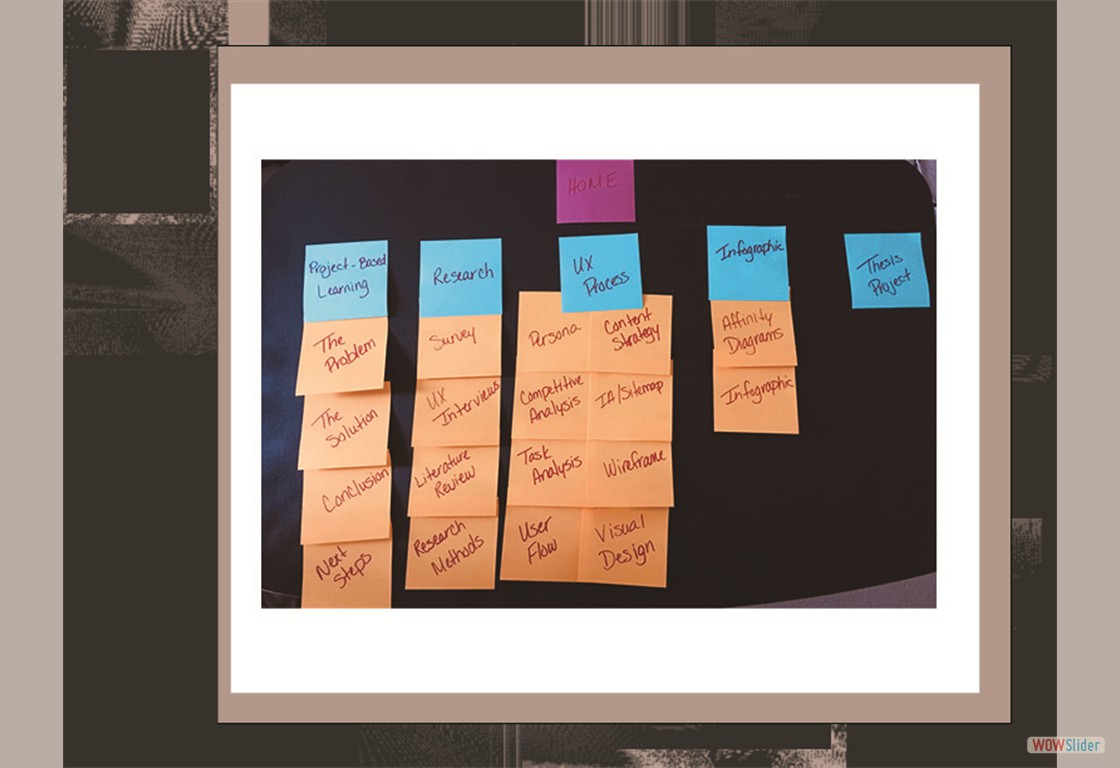 HOME
Project-Based
Learning
The
Problem
The
Solution
Conclusion
Next
Steps
Research
Survey
UX
Interviews
Literature
Review
Research
Methods
UX
Process
Persona
Competitive
Analysis
Task
Analysis
User
Flow
Content
Strategy
IA/Sitemap
Wireframe
Visual
Design
Infographic
Affinity
Diagrams
Infographic
Thesis
Project
WOWSlider